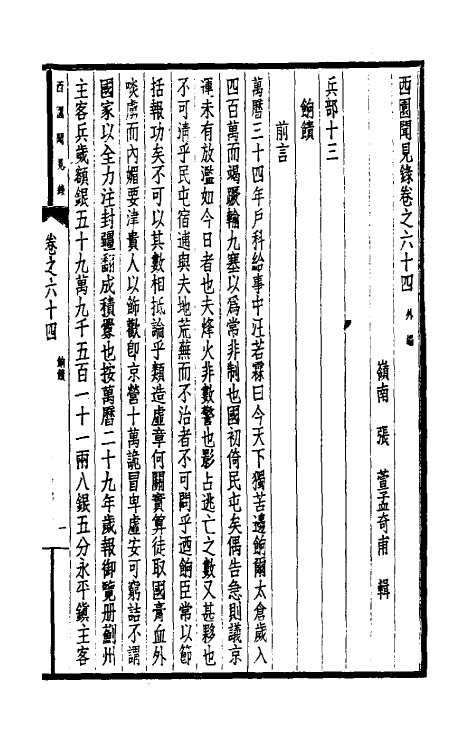 西園聞見錄卷之六十四 外編
嶺南 張 萱孟奇甫 輯
兵部十三
餉饋
前言
萬曆三十四年戶科給事中汪若霖曰今天下獨苦邊餉爾太倉歲入
四百萬而竭蹷輸九塞以爲常非制也國初倚民屯矣偶告急則議京
運未有放濫如今日者也夫烽火非數警也影占逃亡之數又甚夥也
不可清乎民屯宿逋與夫地荒蕪而不治者不可問乎迺餉臣常以節
括報功矣不可以其數相抵論乎類造虛章何關實算徒取國膏血外
啖虜而內媚要津貴人以飾歡卽京營十萬詭冒卑虛安可窮詰不謂
國家以全力注封疆翻成積釁也按萬曆二十九年歲報御覽册薊州
主客兵歲額銀五十九萬九千五百一十一兩八銀五分永平鎮主客
西園聞見錄 卷之六十四 餉饋 一